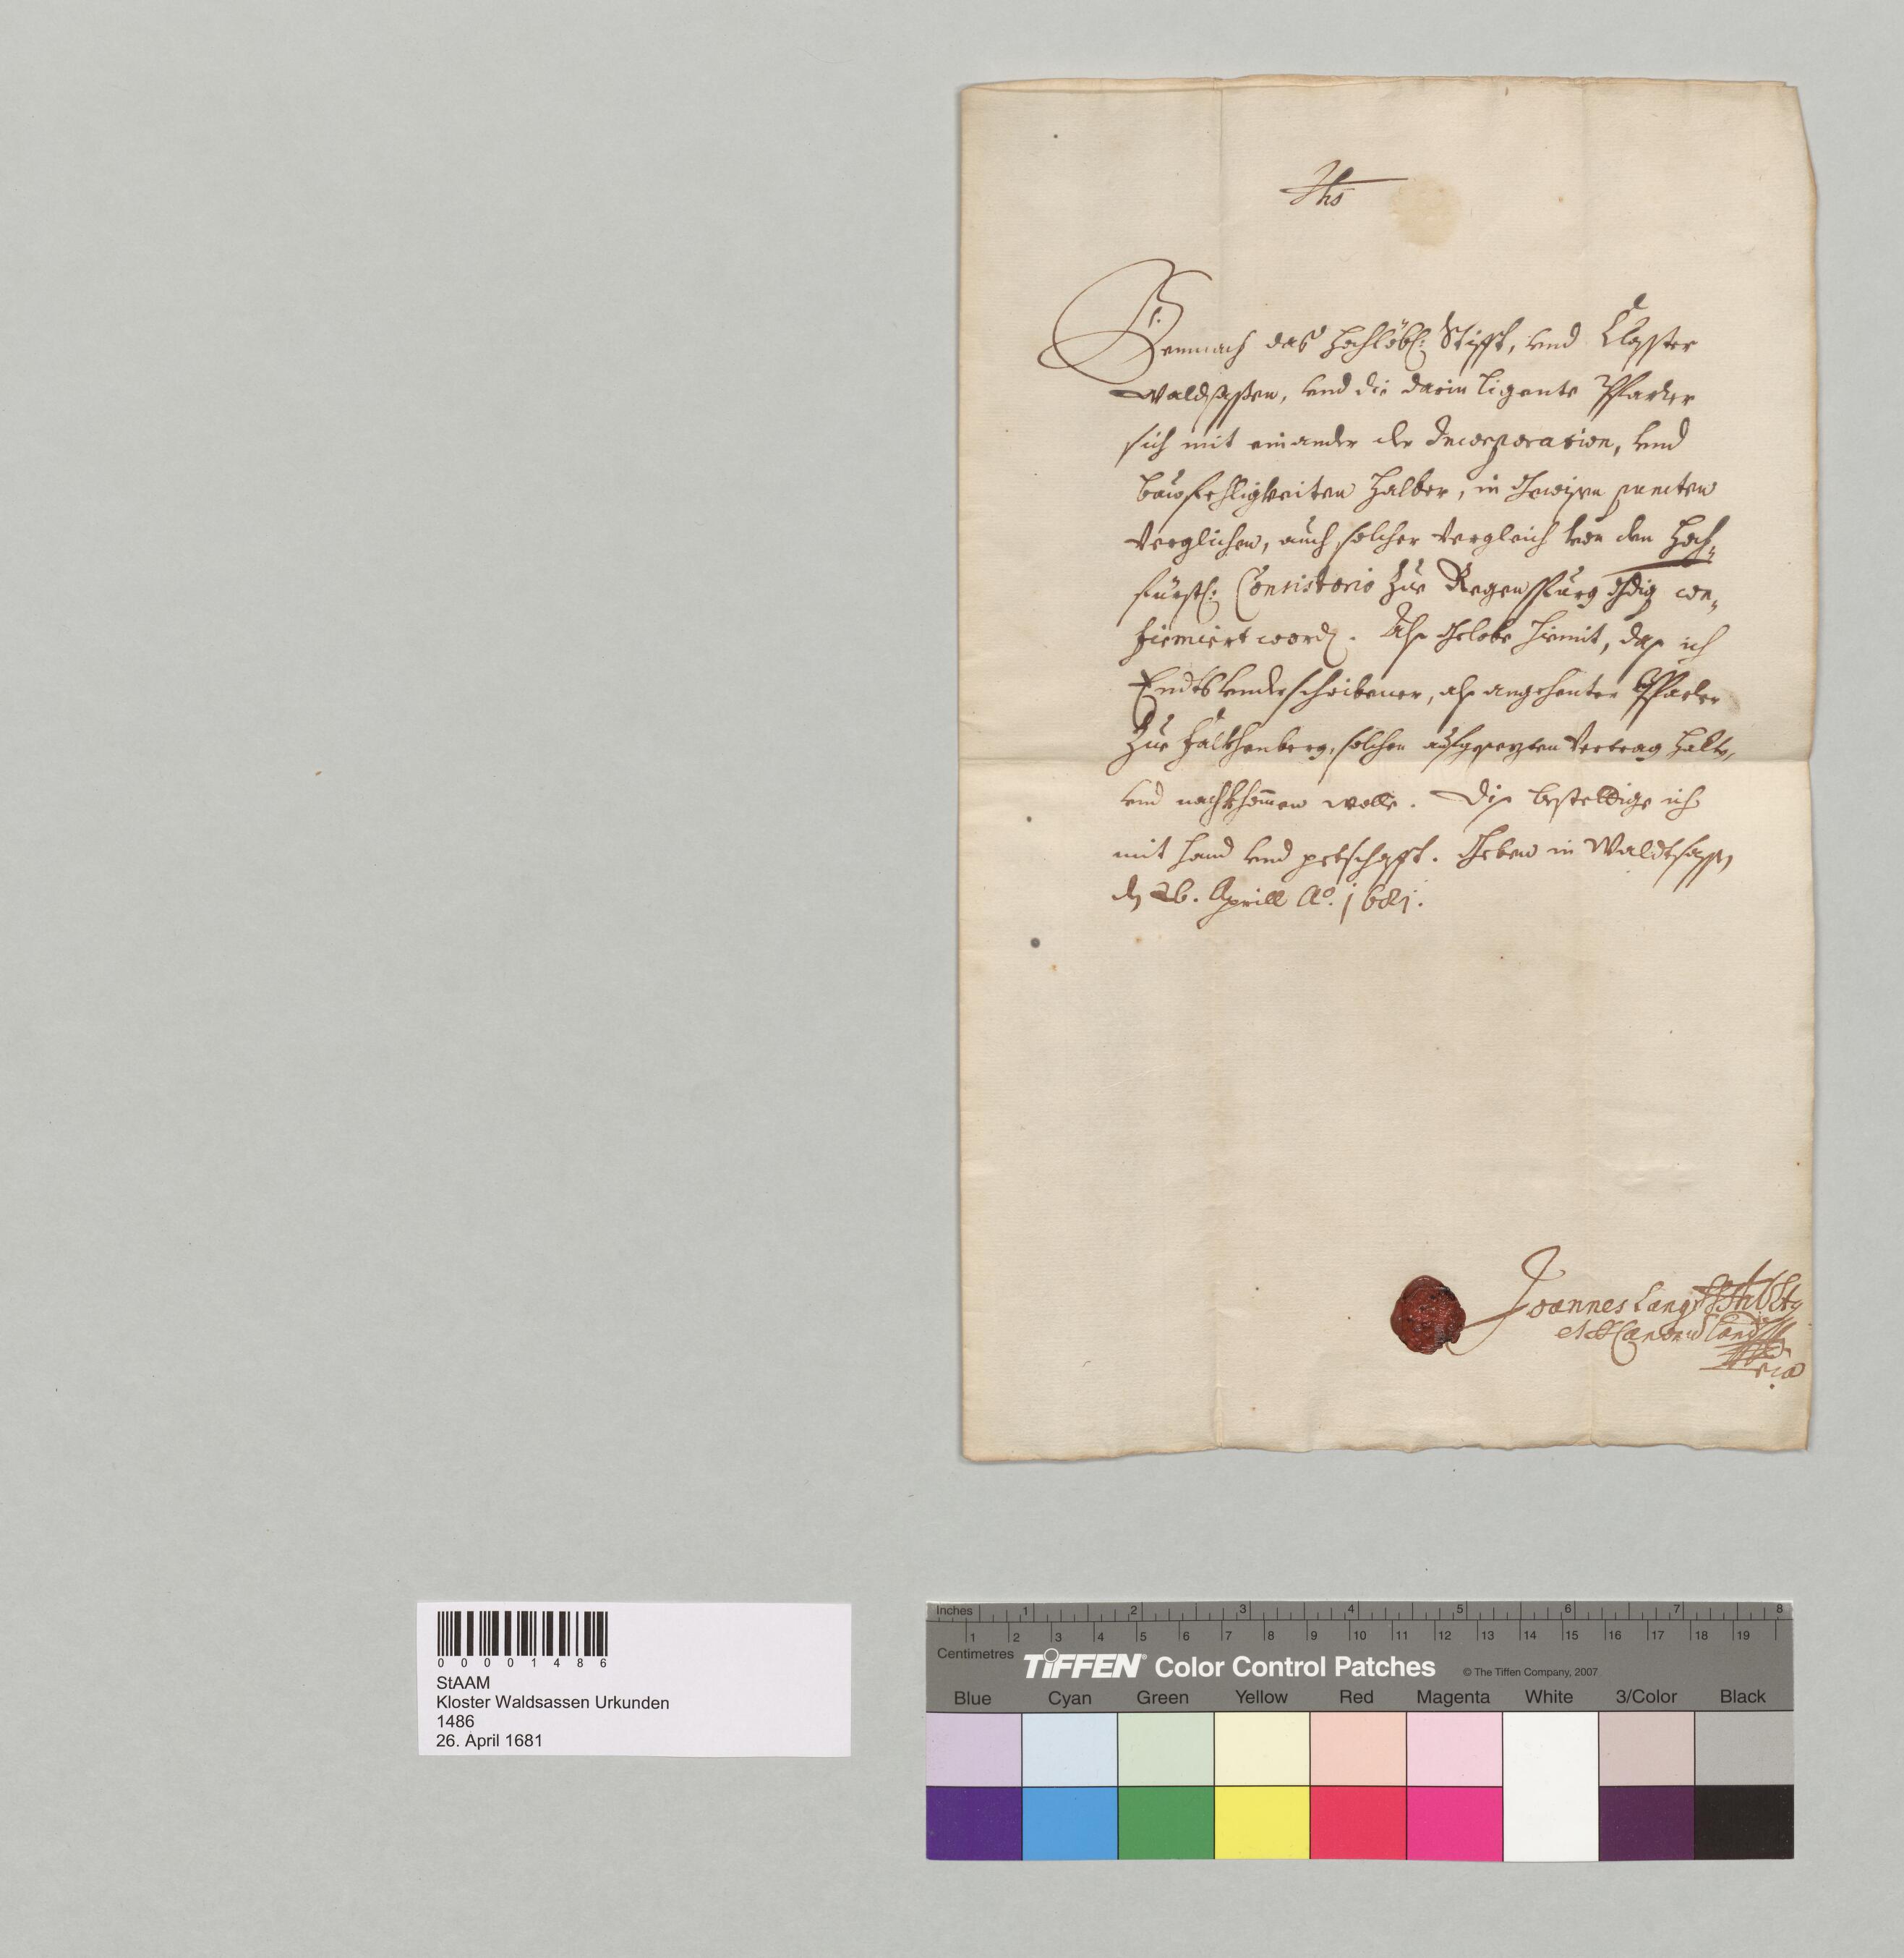 Ihs
Demnach das hochlöbl: Stifft, vnd Closter
Waldsaßen, vnd die darin ligente Pfarrer
sich mit einander der Incorporation, vnd
bawfehligkeiten halber, in Gewißen puncten
verglichen, auch solcher vergleich von den Hoch-
fürstl: Consistorio zue Regenspurg gdig con-
firmiert word. Alß Gelobe hiemit, daß ich
Endts vnderschribener, alß angehenter Pfarrer
zue Falkhenberg, solchen aufgesezten Vertrag halten,
vnd nachkhommen wolle. Diß bestettige ich
mit hand vnd petschafft. Geben in Waldtsaßen
den 26. Aprill Ao. 1681.
Joannes Lang
00001486
StAAM
Kloster Waldsassen Urkunden
1486
26. April 1681
Inches 1 2 3 4 5 6 7 8
1 2 3 4 5 6 7 8 9 10 11 12 13 14 15 16 17 18 19
Centimetres
TIFFEN® Color Control Patches © The Tiffen Company, 2007
Blue Cyan Green Yellow Red Magenta White 3/Color Black